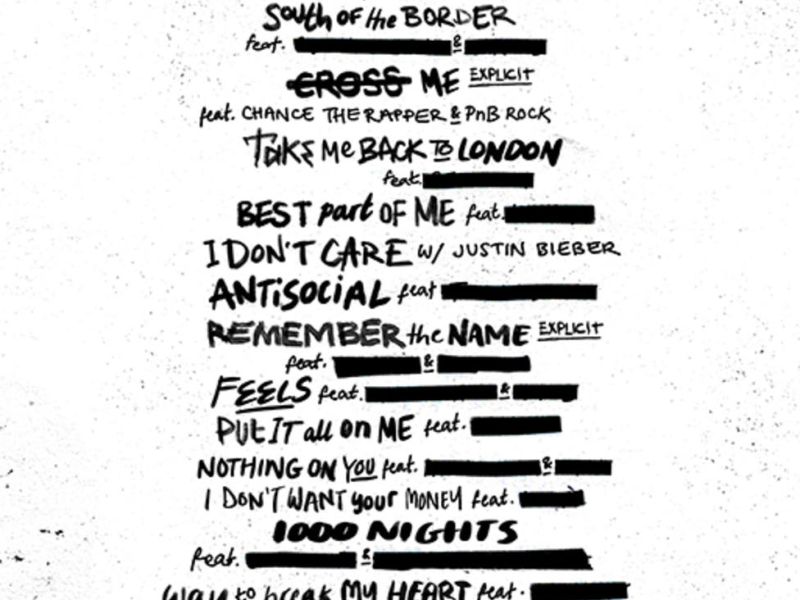 South OF the BORDER
feat. &
CROSS ME EXPLICIT
feat. CHANCE THE RAPPER & PnB ROCK
TAKE Me BACK TO LONDON
feat.
BEST part OF ME feat.
I DON'T CARE w/ JUSTIN BIEBER
ANTiSOCiAL feat
REMEMBER the NAME EXPLICIT
feat. &
FEELS feat. &
PUt IT all on ME feat.
NOTHING ON YOU feat. &
I DON'T WANT your MONEY feat.
1000 NIGHTS
feat. &
Way to break MY HEART feat.